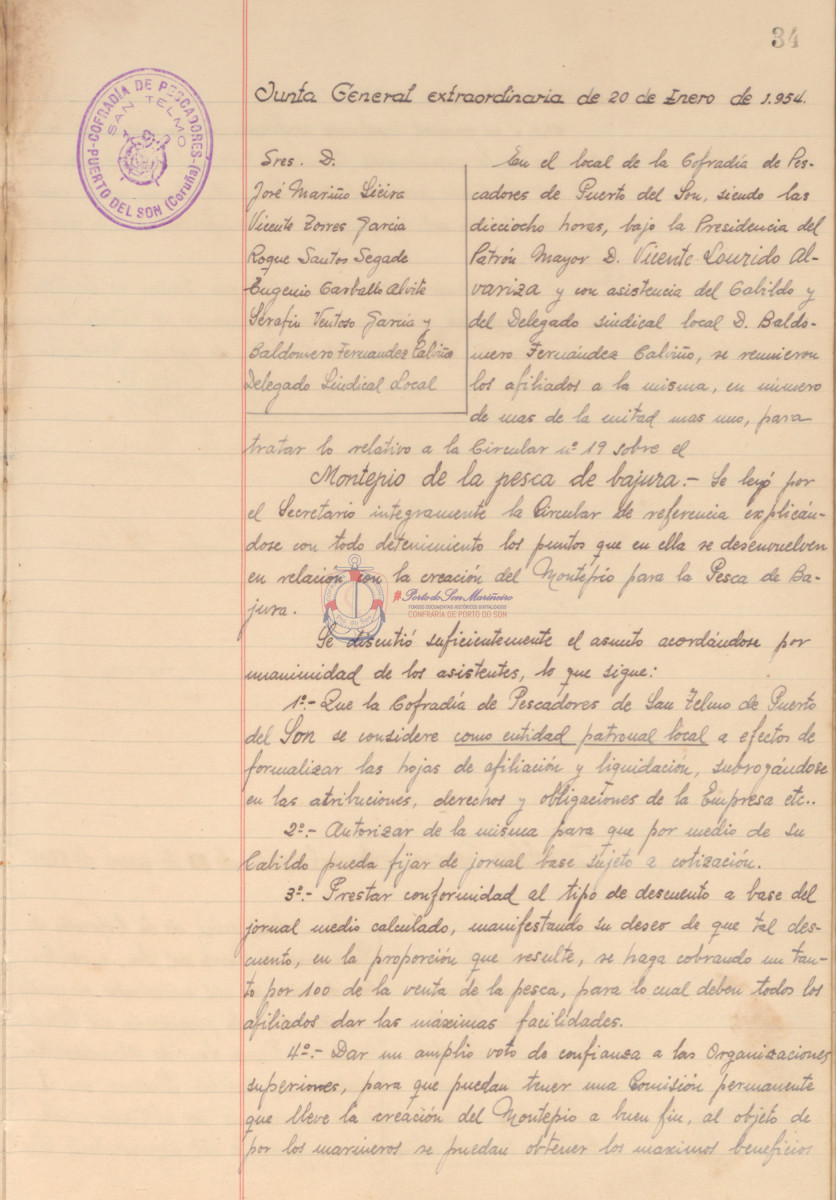 34
COFRADÍA DE PESCADORES
SAN TELMO
PUERTO DEL SON (Coruña)
Junta General extraordinaria de 20 de Enero de 1.954.
Sres. D.
José Mariño Lieira
Vicente Torres García
Roque Santos Segade
Eugenio Carballo Alvite
Serafín Ventoso García y
Baldomero Fernandez Calviño
Delegado Sindical Local
En el local de la Cofradía de Pes-
cadores de Puerto del Son, siendo las
dieciocho horas, bajo la Presidencia del
Patrón Mayor D. Vicente Lourido Al-
variza y con asistencia del Cabildo y
del Delegado sindical local D. Baldo-
mero Fernández Calviño, se reunieron
los afiliados a la misma, en número
de mas de la mitad mas uno, para
tratar lo relativo a la Circular nº 19 sobre el
Montepio de la pesca de bajura.- Se leyó por
el Secretario integramente la Circular de referencia explicán-
dose con todo detenimiento los puntos que en ella se desenvuelven
en relación con la creación del Montepío para la Pesca de Ba-
jura.
#PortodoSonMariñeiro
FONDOS DOCUMENTAIS HISTÓRICOS DIXITALIZADOS
CONFRARÍA DE PORTO DO SON
Se discutió suficientemente el asunto acordándose por
unanimidad de los asistentes, lo que sigue:
1º.- Que la Cofradía de Pescadores de San Telmo de Puerto
del Son se considere como entidad patronal local a efectos de
formalizar las hojas de afiliación y liquidación, subrogándose
en las atribuciones, derechos y obligaciones de la Empresa etc..
2º.- Autorizar de la misma para que por medio de su
Cabildo pueda fijar de jornal base sujeto a cotización.
3º.- Prestar conformidad al tipo de descuento a base del
jornal medio calculado, manifestando su deseo de que tal des-
cuento, en la proporción que resulte, se haga cobrando un tan-
to por 100 de la venta de la pesca, para lo cual deben todos los
afiliados dar las máximas facilidades.
4º.- Dar un amplio voto de confianza a las Organizaciones
superiores, para que puedan tener una Comisión permanente
que lleve la creación del Montepío a buen fin, al objeto de
por los marineros se puedan obtener los maximos beneficios